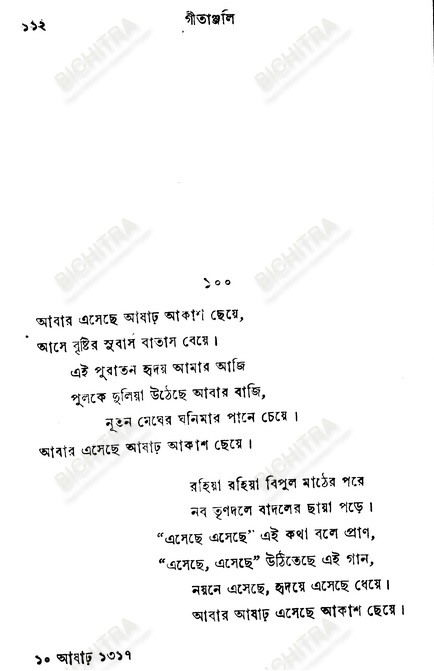 ১১২
গীতাঞ্জলি
১০০
আবার এসেছে আষাঢ় আকাশ ছেয়ে,
আসে বৃষ্টির সুবাস বাতাস বেয়ে।
এই পুরাতন হৃদয় আমার আজি
পুলকে দুলিয়া উঠেছে আবার বাজি,
নূতন মেঘের ঘনিমার পানে চেয়ে।
আবার এসেছে আষাঢ় আকাশ ছেয়ে।
রহিয়া রহিয়া বিপুল মাঠের পরে
নব তৃণদলে বাদলের ছায়া পড়ে।
“এসেছে এসেছে” এই কথা বলে প্রাণ,
“এসেছে, এসেছে” উঠিতেছে এই গান,
নয়নে এসেছে, হৃদয়ে এসেছে ধেয়ে।
আবার আষাঢ় এসেছে আকাশ ছেয়ে।
১০ আষাঢ় ১৩১৭
BICHITRA
BICHITRA
BICHITRA
BICHITRA
BICHITRA
BICHITRA
BICHITRA
BICHITRA